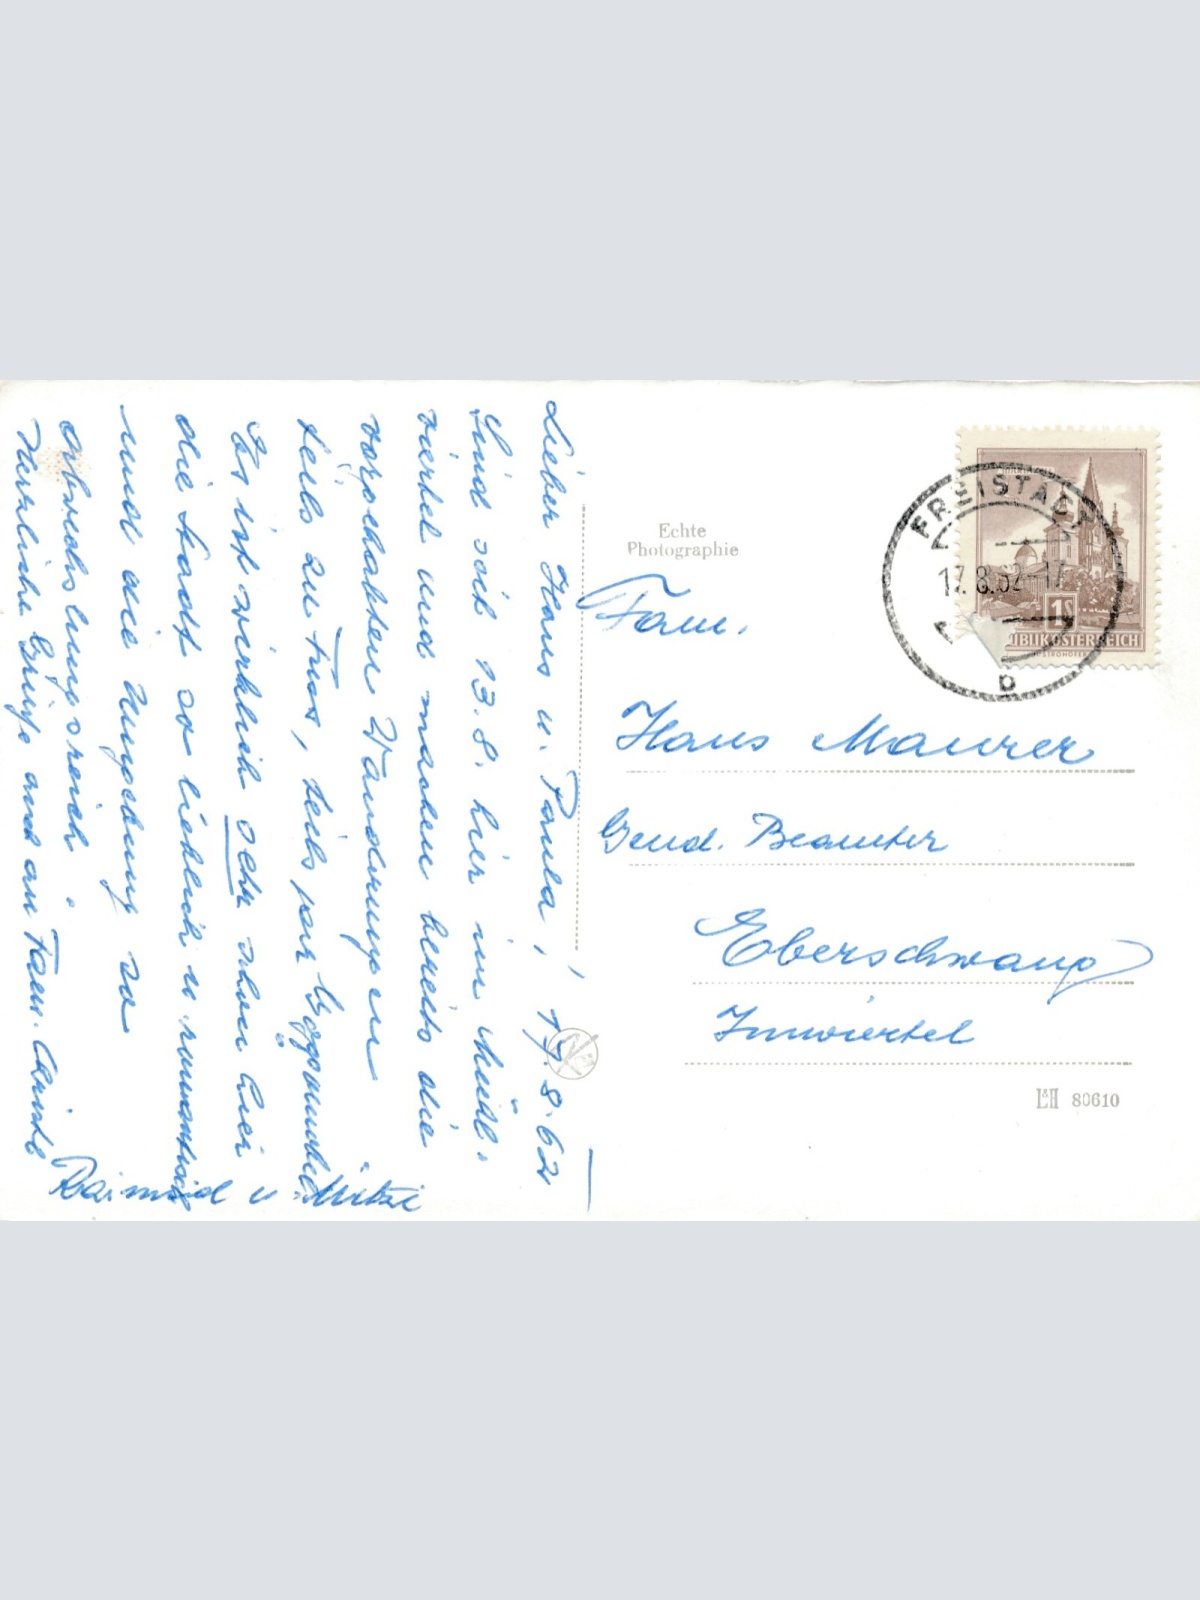 Lieber Hans u. Paula! 17.8.62
Sind seit 13.8. hier im Mühl-
viertel und machen bereits die
vorgehabten Wanderungen
teils zu Fuss, teils per
Es ist wirklich sehr schön hier
die Stadt so lieblich u. romantisch
und die Umgebung so
abwechslungsreich.
Herzliche Grüße auch an Fam.
Raimund u. Mitzi
Echte
Photographie
FREISTADT
17.8.62-17
b
1S
REPUBLIK ÖSTERREICH
Fam.
Hans Maurer
Gend. Beamter
Eberschwang
Innviertel
L&H 80610